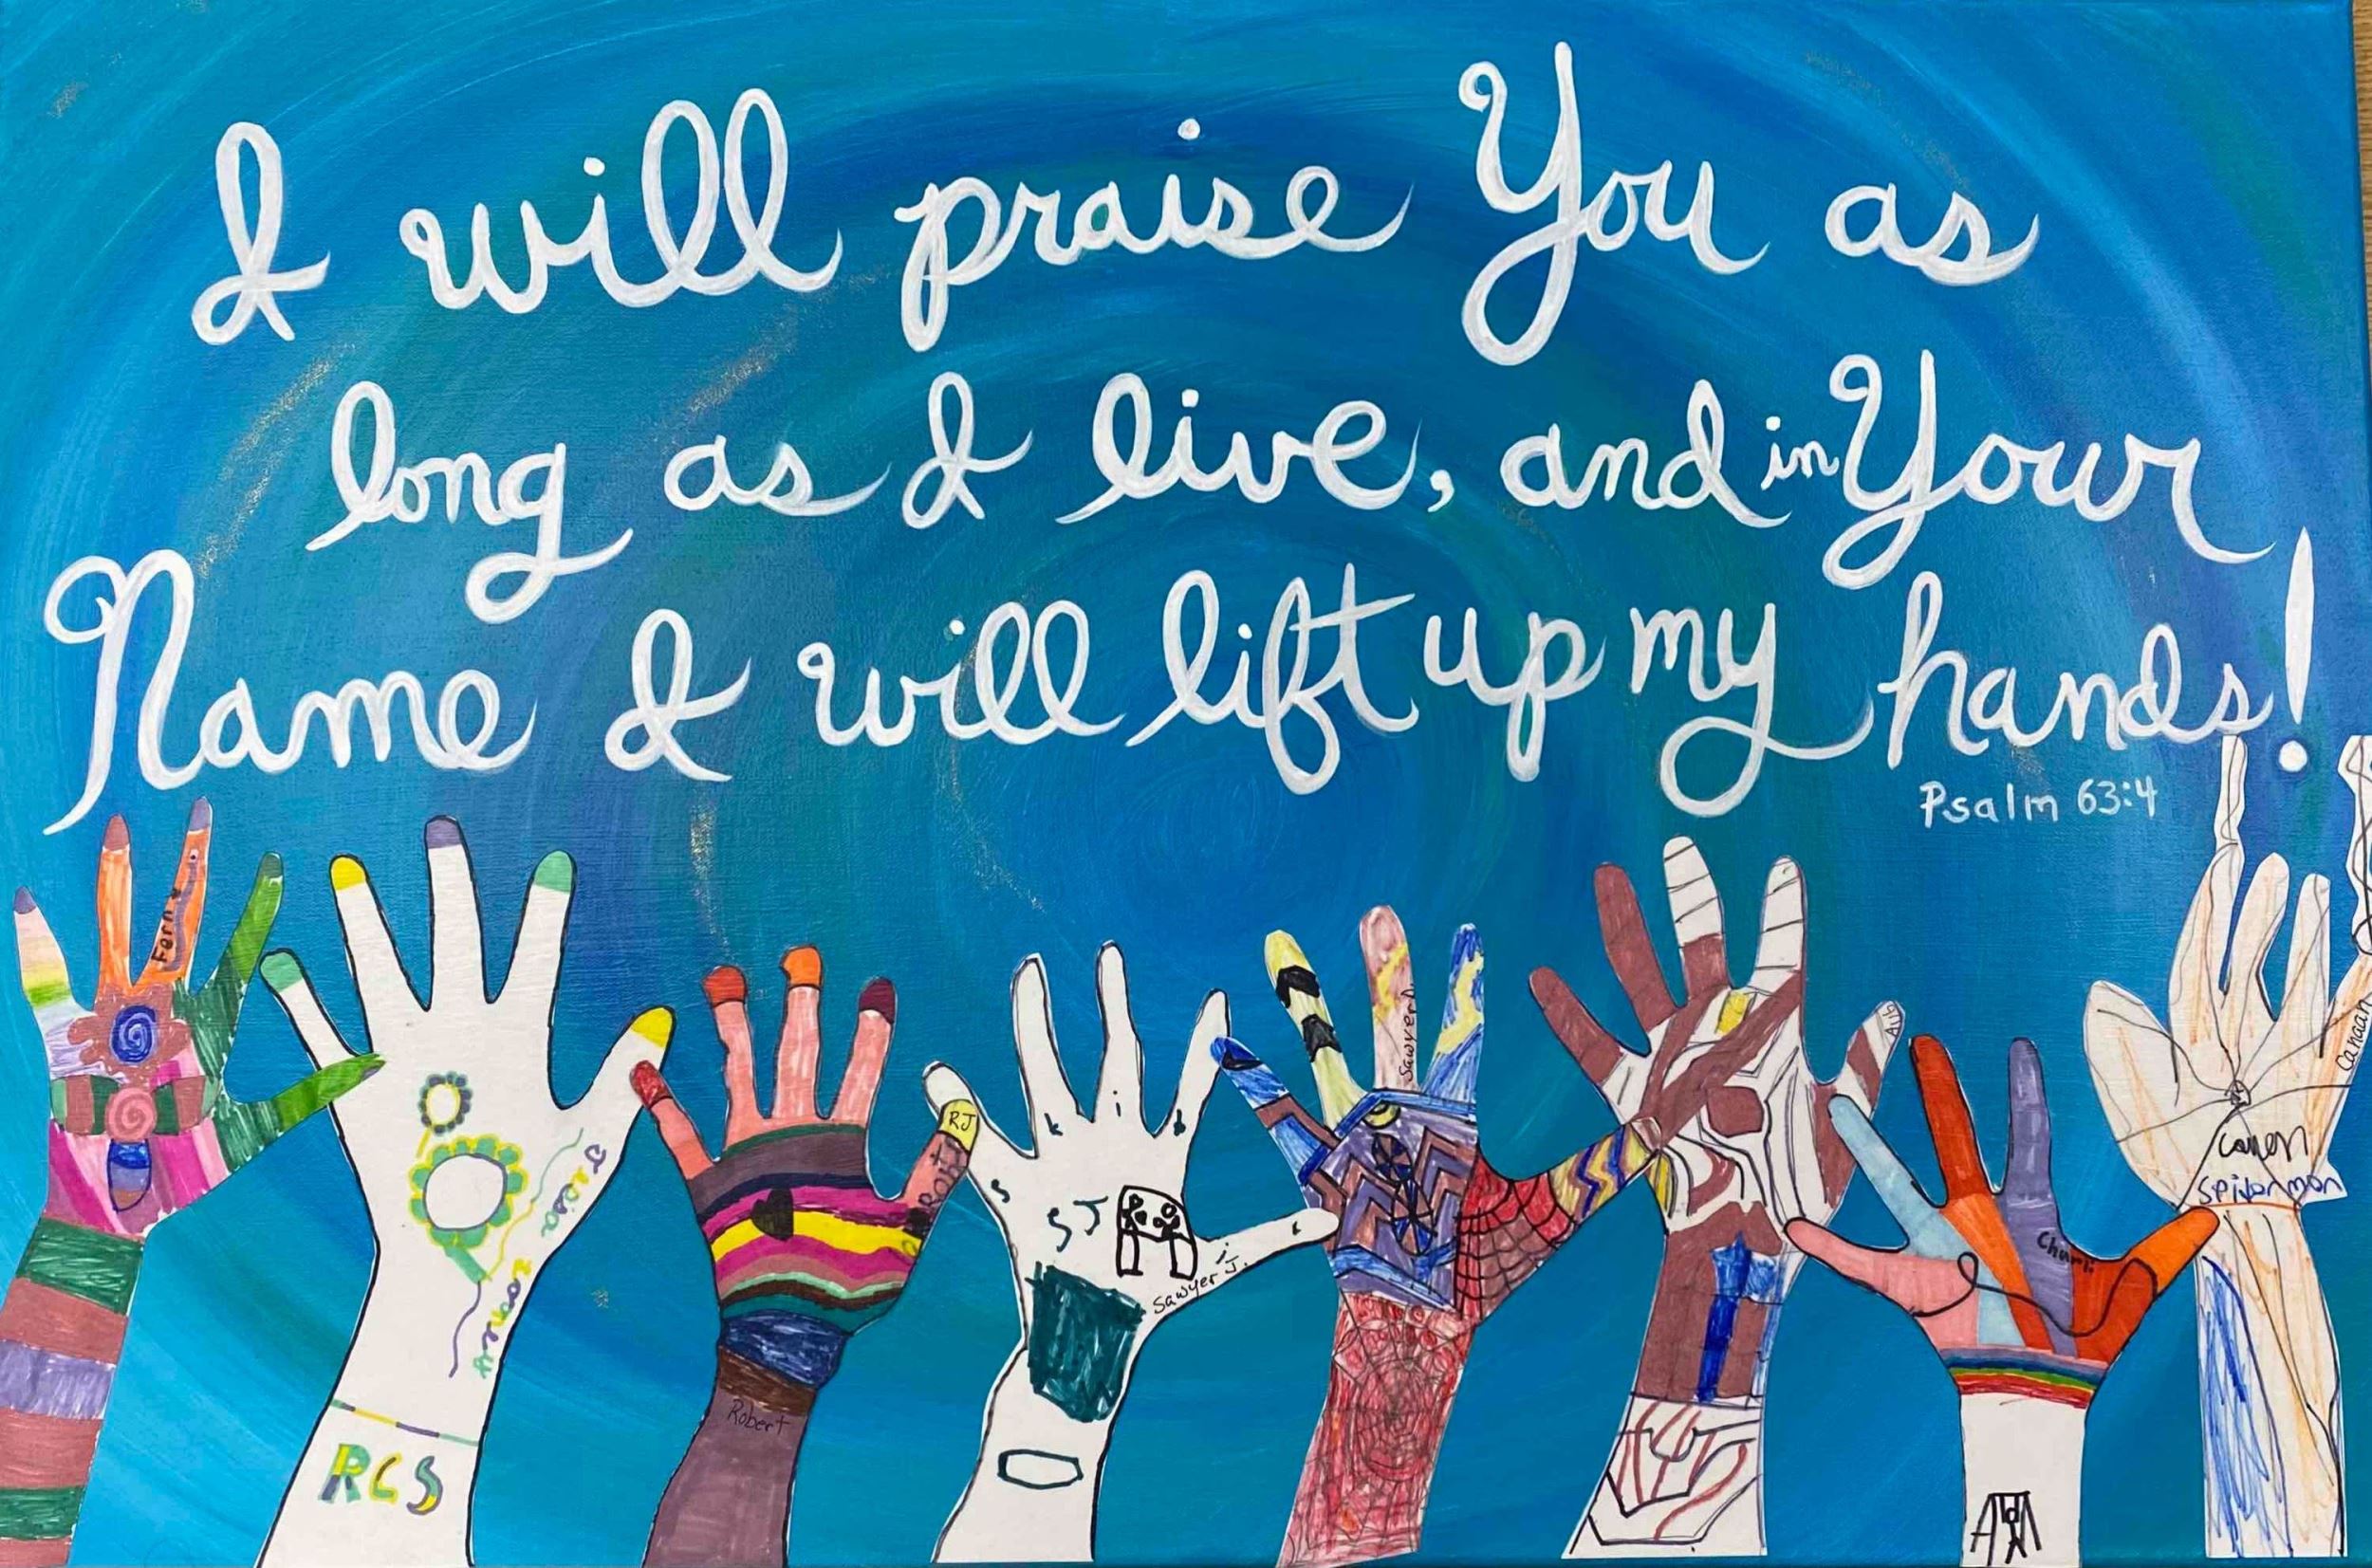 I will praise You as
long as I live, and in Your
Name I will lift up my hands!
Psalm 63:4
RJ
Sawyer D.
SJ
Sawyer J.
Canaan
canen
spidormon
RCS
Robert